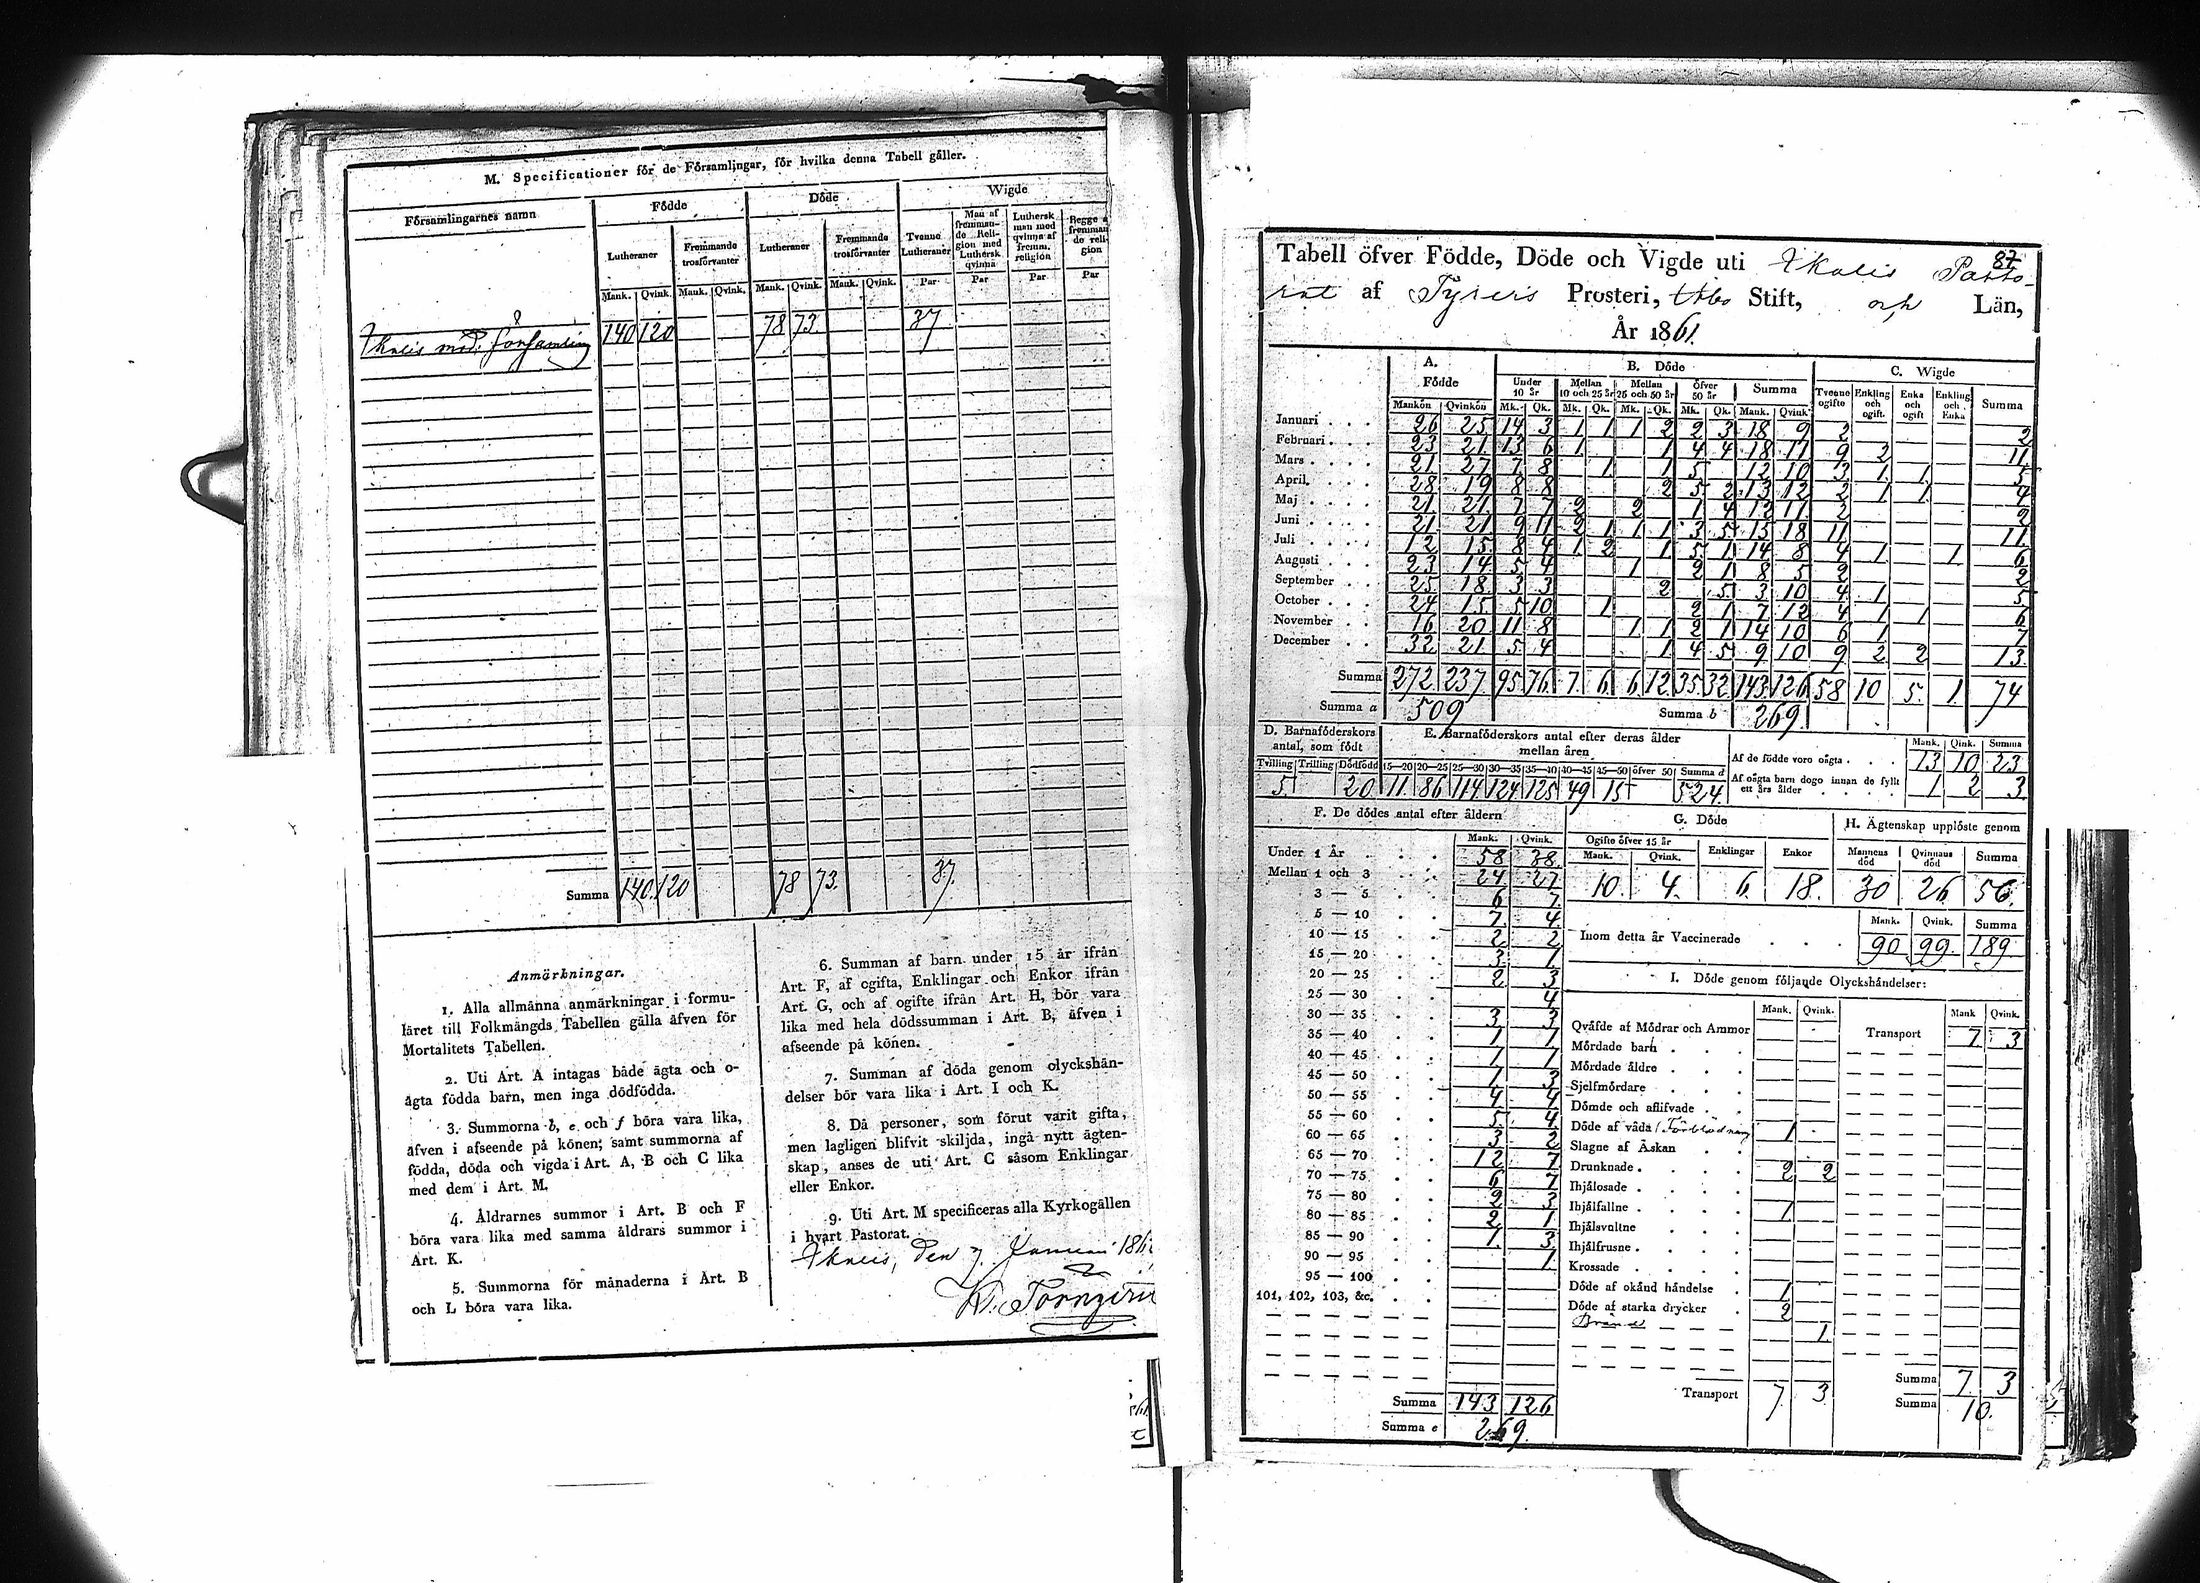 M. Specificationer för de Församlingar, för hvilka denna Tabell gäller.
Församlingarnes namn Födde Döde Wigde
Lutheraner Fremmande trosförvanter Lutheraner Fremmande trosförvanter Tvenne Lutheraner Man af fremmande Religion med Luthersk qvinna Luthersk man med qvinna af fremm. religion Begge fremman de religion
Mank. Qvink. Mank. Qvink. Mank. Qvink. Mank. Qvink. Par Par Par Par
140 120 78 73 37
Summa 140 120 78 73 37
Anmärkningar.
1. Alla allmänna anmärkningar i formu-
läret till Folkmängds Tabellen gälla äfven för
Mortalitets Tabellen.
2. Uti Art. A intagas både ägta och o-
ägta födda barn, men inga dödfödda.
3. Summorna b, e och f böra vara lika,
äfven i afseende på könen; samt summorna af
födda, döda och vigda i Art. A, B och C lika
med dem i Art. M.
4. Åldrarnes summor i Art. B och F
böra vara lika med samma åldrars summor i
Art. K.
5. Summorna för månaderna i Art. B
och L böra vara lika.
6. Summan af barn under 15 år ifrån
Art. F, af ogifta, Enklingar och Enkor ifrån
Art. G, och af ogifte ifrån Art. H, bör vara
lika med hela dödssumman i Art. B, äfven i
afseende på könen.
7. Summan af döda genom olyckshän-
delser bör vara lika i Art. I och K.
8. Då personer, som förut varit gifta,
men lagligen blifvit skiljda, ingå nytt ägten-
skap, anses de uti Art. C såsom Enklingar
eller Enkor.
9. Uti Art. M specificeras alla Kyrkogällen
i hvart Pastorat.
87
Tabell öfver Födde, Döde och Vigde uti Ikalis Pasto-
rat af Tyrvis Prosteri, Åbo Stift, och Län,
År 1861.
A. Födde B. Döde C. Wigde
Under 10 år Mellan 10 och 25 år Mellan 25 och 50 år Öfver 50 år Summa Tvenne ogifte Enkling och ogift. Enka och ogift Enkling och Enka Summa
Mankön Qvinkön Mk. Qk. Mk. Qk. Mk. Qk. Mk. Qk. Mank. Qvink.
Januari 26 25 14 3 1 1 1 2 2 3 18 9 2 2
Februari 23 21 13 6 1 1 4 4 18 11 9 2 11
Mars 21 27 7 8 1 1 5 12 10 3 1 1 5
April 28 19 8 8 2 5 2 13 12 2 1 1 4
Maj 21 21 7 7 2 2 1 4 12 11 2 2
Juni 21 21 9 11 2 1 1 1 3 5 15 18 11 11
Juli 12 15 8 4 1 2 1 5 1 14 8 4 1 1 6
Augusti 23 14 5 4 1 2 1 8 5 2 2
September 25 18 3 3 2 5 3 10 4 1 5
October 24 15 5 10 1 2 1 7 12 4 1 1 6
November 16 20 11 8 1 1 2 1 14 10 6 1 7
December 32 21 5 4 1 4 5 9 10 9 2 2 13
Summa 272 237 95 76 7 6 6 12 35 32 143 126 58 10 5 1 74
Summa a 509 Summa b 269
D. Barnaföderskors antal, som födt
Tvilling Trilling Dödfödd
5 20
E. Barnaföderskors antal efter deras ålder mellan åren
15—20 20—25 25—30 30—35 35—40 40—45 45—50 öfver 50 Summa d
11 86 114 124 125 49 15 524
Mank. Qink. Summa
Af de födde voro oägta 13 10 23
Af oägta barn dogo innan de fyllt ett års ålder 1 2 3
F. De dödes antal efter åldern
Mank. Qvink.
Under 1 År 58 38
Mellan 1 och 3 24 27
3 — 5 6 7
5 — 10 7 4
10 — 15 2 2
15 — 20 3 1
20 — 25 2 3
25 — 30 4
30 — 35 3 3
35 — 40 1 1
40 — 45 1 1
45 — 50 1 3
50 — 55 4 4
55 — 60 5 4
60 — 65 3 2
65 — 70 12 7
70 — 75 6 7
75 — 80 2 3
80 — 85 2 1
85 — 90 1 3
90 — 95 1
95 — 100
101, 102, 103, &c.
Summa 143 126
Summa e 269
G. Döde
Ogifte öfver 15 år Enklingar Enkor
Mank. Qvink.
10 4 6 18
H. Ägtenskap upplöste genom
Mannens död Qvinnans död Summa
30 26 56
Mank. Qvink. Summa
Inom detta år Vaccinerade 90 99 189
I. Döde genom följande Olyckshändelser:
Mank. Qvink. Mank Qvink.
Qväfde af Mödrar och Ammor Transport 7 3
Mördade barn
Mördade äldre
Sjelfmördare
Dömde och aflifvade
Döde af våda Förblodning 1
Slagne af Åskan
Drunknade 2 2
Ihjälosade
Ihjälfallne 1
Ihjälsvultne
Ihjälfrusne
Krossade
Döde af okänd händelse 1
Döde af starka drycker 2
Bränd 1
Transport 7 3
Summa 7 3
Summa 10